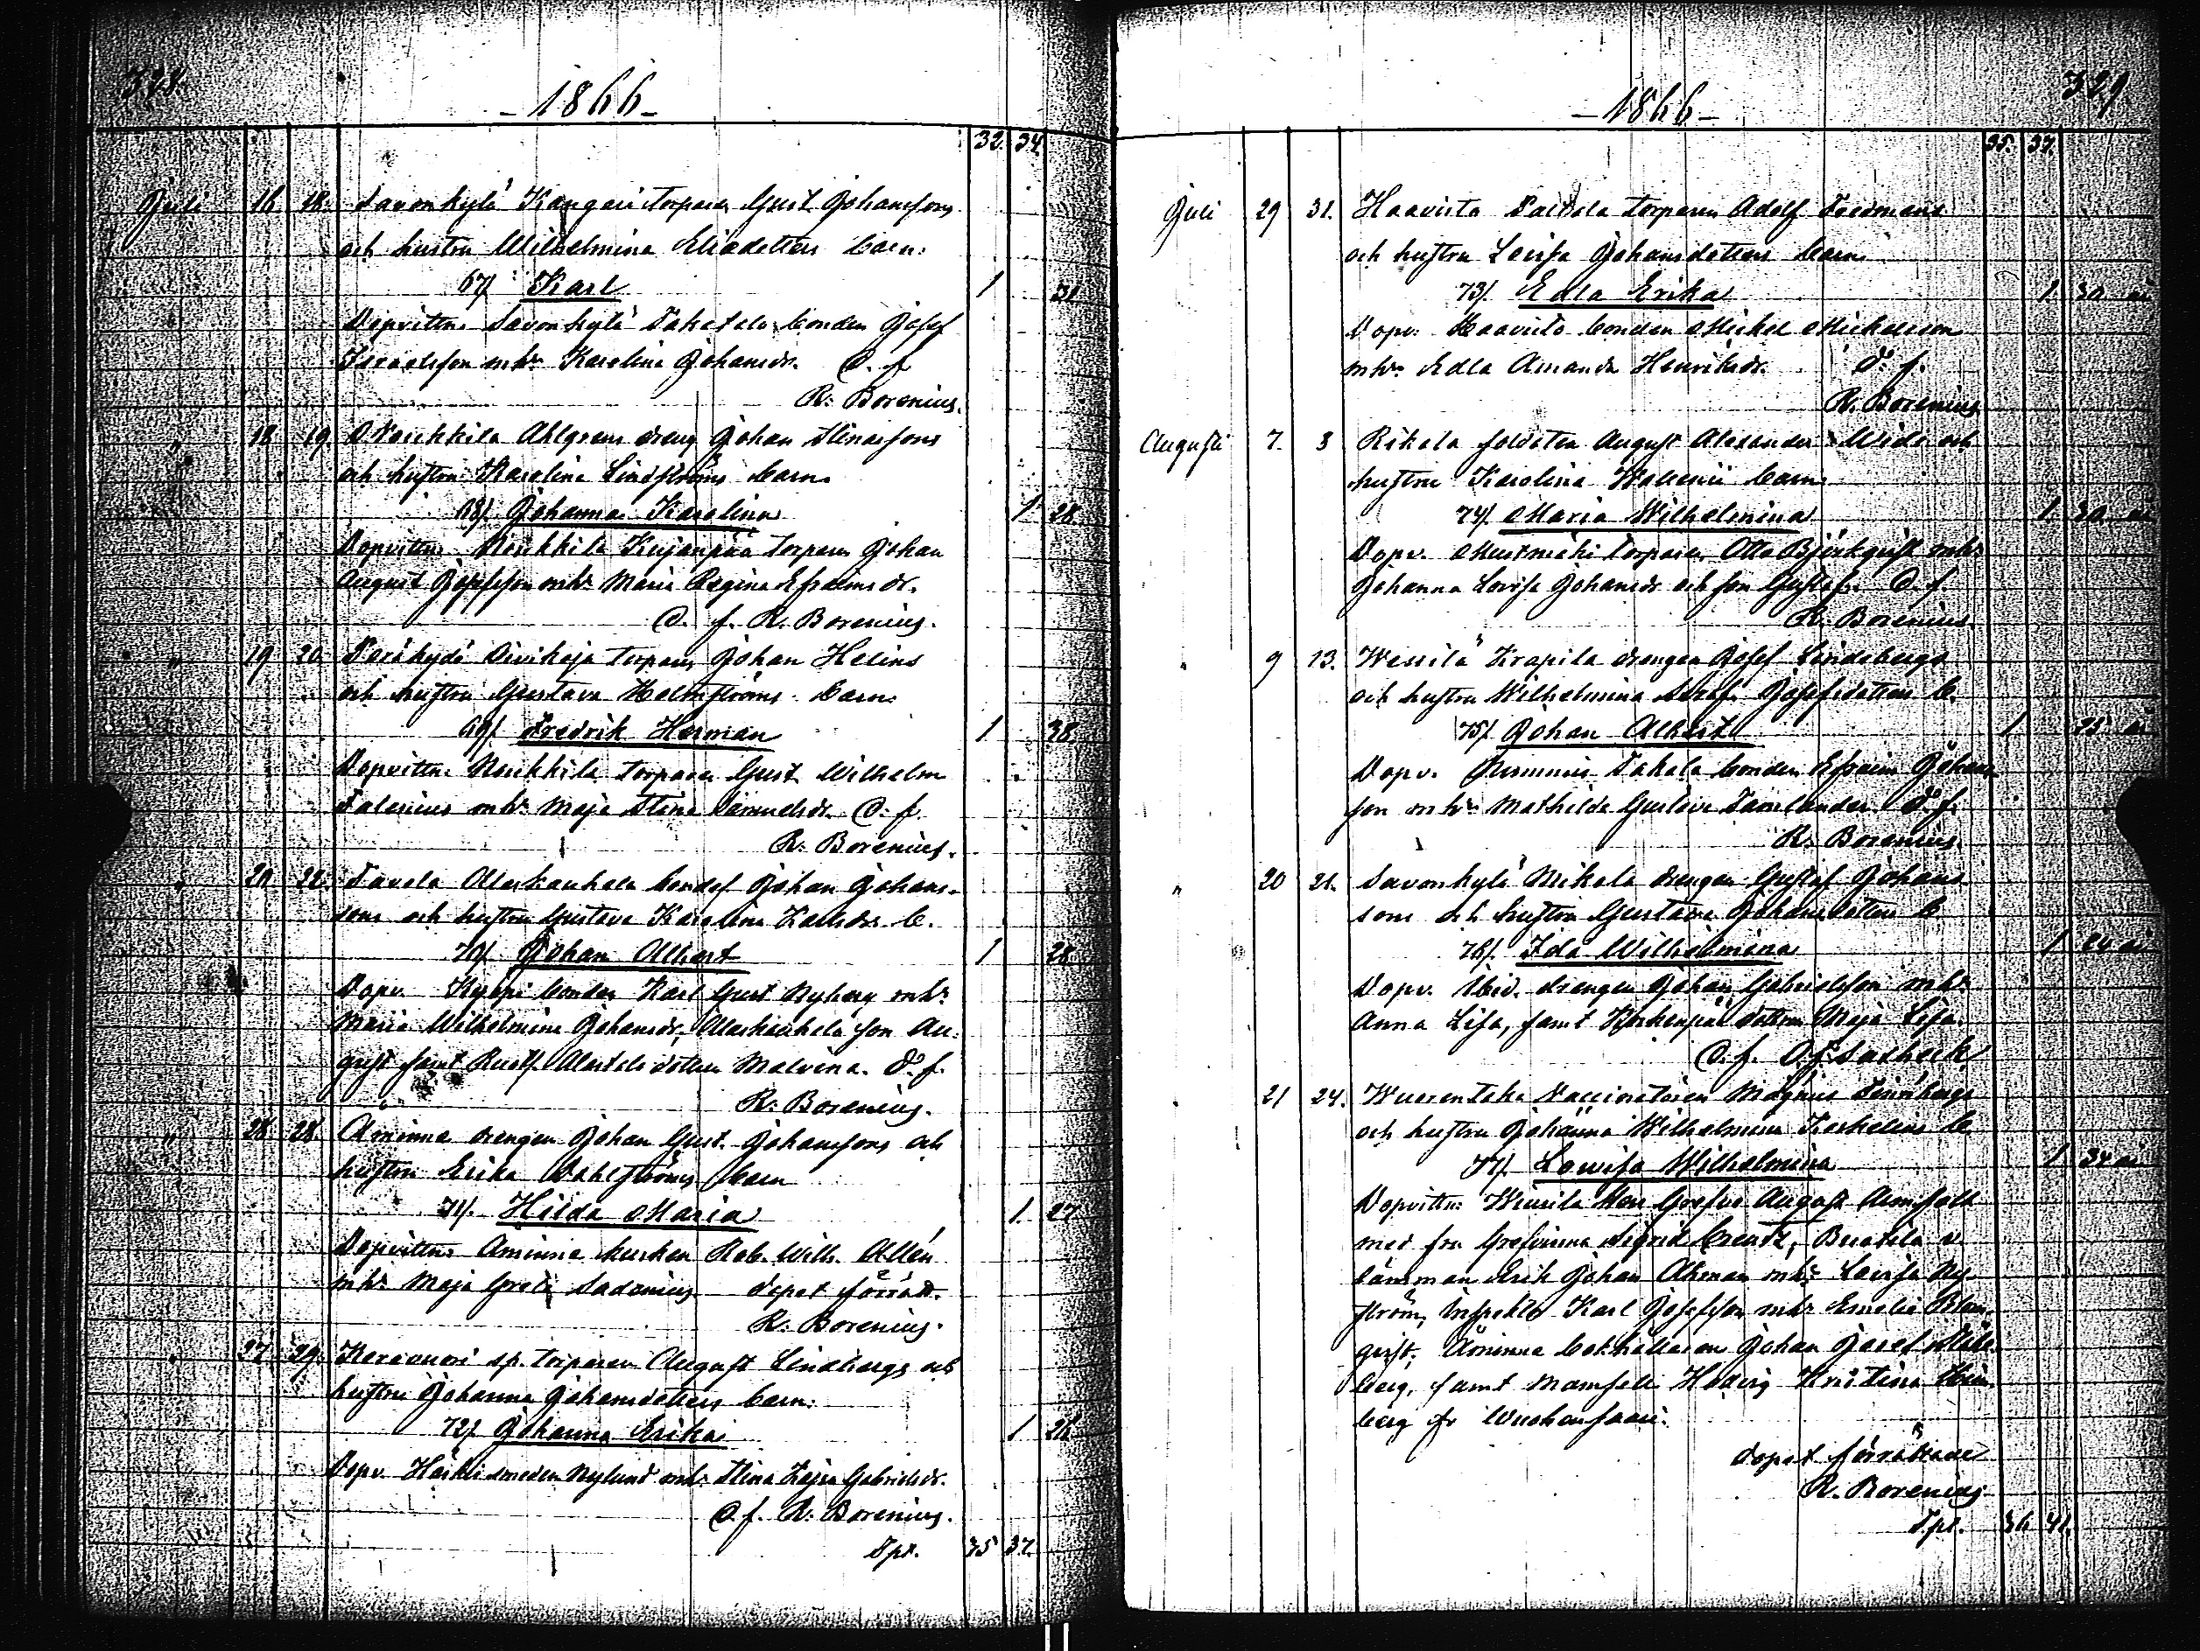 328
- 1866 -
32. 34.
Juli 16. 18. Savonkylä Kangari torparen Gust. Johanssons
och hustru Wilhelmina Eliedotters barn:
67/. Karl 1 31
Dopvittne Savonkylä Takatalo bonden Josef
Israelsson mhr Karolina Johansdr. D. f.
R. Borenius.
" 18 19. Noukkila Ahlgrens dreng Johan Stinassons
och hustru Karolina Lindströms barn.
68/. Johanna Karolina 1 28
Dopvittne Noukkila Kujanpää torparen Johan
August Josefsson mhr Maria Regina Efraimsdr.
D. f. R. Borenius.
" 19 20. torparen Johan Helins
och hustru Gustava Holmströms barn.
69/. Fredrik Herman 1 38
Dopvittne Noukkila torparen Gust. Wilhelm
Talenius mhr Maja Stina Samuelsdr. D. f.
R. Borenius.
" 20. 22. Tavola Alaskauhala bondes Johan Johans-
sons och hustru Gustava Karolina Karlsdr. b.
70/. Johan Albert 1 28
Dopv. bonden Karl Gust Nyberg mhr
Maria Wilhelmina Johansdr, Alaskauhala son Au-
gust samt dottern Malvina. D. f.
R. Borenius.
" 26. 28. Åminne drengen Johan Gust. Johanssons och
hustru Erika Dahlströms barn
71/. Hilda Maria 1. 27
Dopvittne Åminne kusken Rob. Wilh. Allén
mhr Maja Greta Sadenius dopet förrätt.
R. Borenius.
" 27. 29. sp. torparen August Lindbergs och
hustru Johanna Johansdotters barn:
72/. Johanna Erika 1 26
Dopv. smeden Nylund mhr Stina Kajsa Gabrielsdr.
D. f. R. Borenius.
Tpt. 35 37.
329
- 1866 -
35. 37.
Juli 29 31. Haavisto torparen Adolf
och hustru Lovisa Johansdotters barn
73/. Edla Erika 1. 30
Dopv. Haavisto bonden Mickel Mickelsson
mhr Edla Amanda Henriksdr. D. f.
R. Borenius
Augusti 7. 8 Rikala soldaten August Alexander och
hustru Karolina barn.
74/. Maria Wilhelmina 1. 30
Dopv. Mustmäki torparen Otto Björkqvist mhr
Johanna Lovisa Johansdr och son Gustaf. D. f.
R. Borenius.
" 9 13. drengen Josef Lindebergs
och hustru Wilhelmina Josefsdotters b.
75/. Johan Albert 1 25
Dopv. Takala bonden Efraim Johans-
son mhr Mathilda Gustava D. f.
R. Borenius.
" 20 21. Savonkylä Mikola drengen Gustaf Johans-
sons och hustru Gustava Johansdotters b.
76/. Ida Wilhelmina 1 24
Dopv. ibid. drengen Johan Gabrielsson mhr
Anna Lisa, samt dottern Maja Lisa.
D. f.
21 24. Wuorentaka Vaccinatören Magnus
och hustru Johanna Wilhelmina b.
77/. Lowisa Wilhelmina 1 34
Dopvittn: Herr Grefve August Armfelt
med fru Grefvinna Sigrid Creutz,
länsman Erik Johan Åkman mhr Lovisa Ny-
ström, Inspektor Karl Josefsson mhr Emelie Blom-
qvist, Åminne bokhållaren Johan Josef
berg, samt Mamsell Hedvig Kristina
berg fr.
dopet förrättade
R. Borenius
Tpt. 36 41.